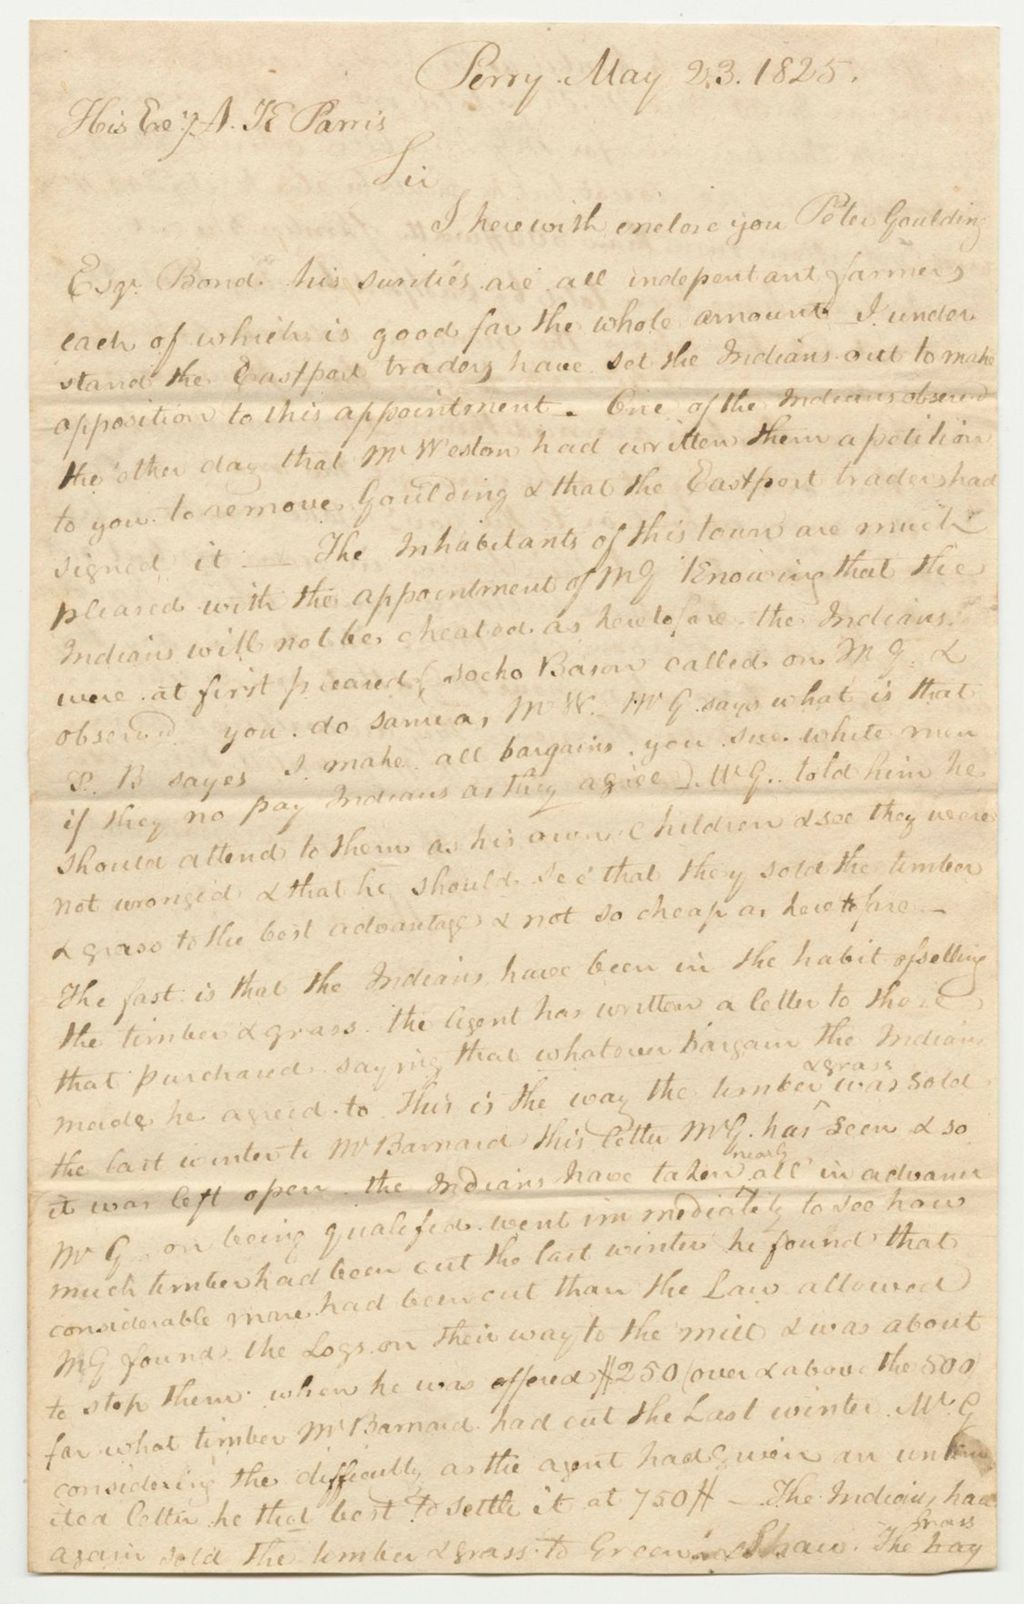 Perry May 23. 1825.
His Exc'y A. K Parris
Sir
I herewith enclose you Peter Goulding
Esqr. Bond. his surities are all indepentant farmers
each of which is good for the whole amount I under
stand the Eastport traders have set the Indians out to make
opposition to this appointment. One of the Indians observed
the other day that Mr Weston had written them a petition
to you to remove Goulding & that the Eastport traders had
signed it — The Inhabitants of this town are much
pleased with the appointment of Mr G Knowing that the
Indians will not be cheated as heretofore. the Indians
were at first pleased (Socko Bason called on Mr G. &
observed you do same as Mr W. Mr G says what is that
S. B sayes I make all bargains you sue white men
if they no pay Indians as they agree). Mr G. told him he
should attend to them as his own Children & see they were
not wronged & that he should see that they sold the timber
& grass to the best advantage & not so cheap as heretofore —
The fast is that the Indians have been in the habit of selling
the timber & grass. the Agent has written a letter to those
that purchased saying that whatever bargain the Indians
made he agreed to. This is the way the timber & grass was sold
the last winter to Mr Barnard this letter Mr G. has seen & so
it was left open. the Indians have taken nearly all in advance
Mr G. on being qualified went immediately to see how
much timber had been cut the last winter he found that
considerable more had been cut than the Law allowed
Mr G found the Logs on their way to the mill & was about
to stop them when he was offered $250 (over & above the 500)
for what timber Mr Barnard had cut the Last winter. Mr. G
considering the difficulty as the agent had given an unlim
ited letter he that best to settle it at 750$ — The Indians had
again sold the timber & grass to Green & Shaw. The grass bay